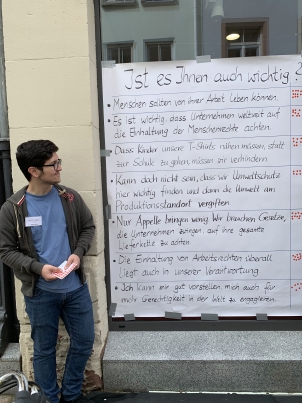 Ist es Ihnen auch wichtig ?
• Menschen sollten von ihrer Arbeit leben können.
• Es ist wichtig, dass Unternehmen weltweit auf
die Einhaltung der Menschenrechte achten.
• Dass Kinder unsere T-Shirts nähen müssen, statt
zur Schule zu gehen, müssen wir verhindern.
• Kann doch nicht sein, dass wir Umweltschutz
hier wichtig finden und dann die Umwelt am
Produktionsstandort vergiften.
• Nur Appelle bringen wenig. Wir brauchen Gesetze,
die Unternehmen zwingen, auf ihre gesamte
Lieferkette zu achten.
• Die Einhaltung von Arbeitsrechten überall
liegt auch in unserer Verantwortung.
• Ich kann mir gut vorstellen, mich auch für
mehr Gerechtigkeit in der Welt zu engagieren.